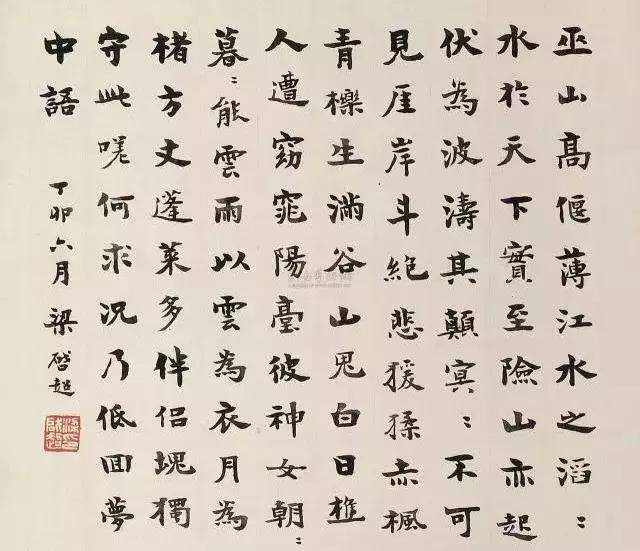 巫山高偃薄江水之滔〻
水於天下實至險山亦起
伏為波濤其顛冥〻不可
見厓岸斗絕悲猨猱赤楓
青櫟生滿谷山鬼白日樵
人遭窈窕陽臺彼神女朝〻
暮〻能雲雨以雲為衣月為
褚方丈蓬萊多伴侶塊獨
守此嗟何求況乃低囬夢
中語
丁卯六月梁啓超